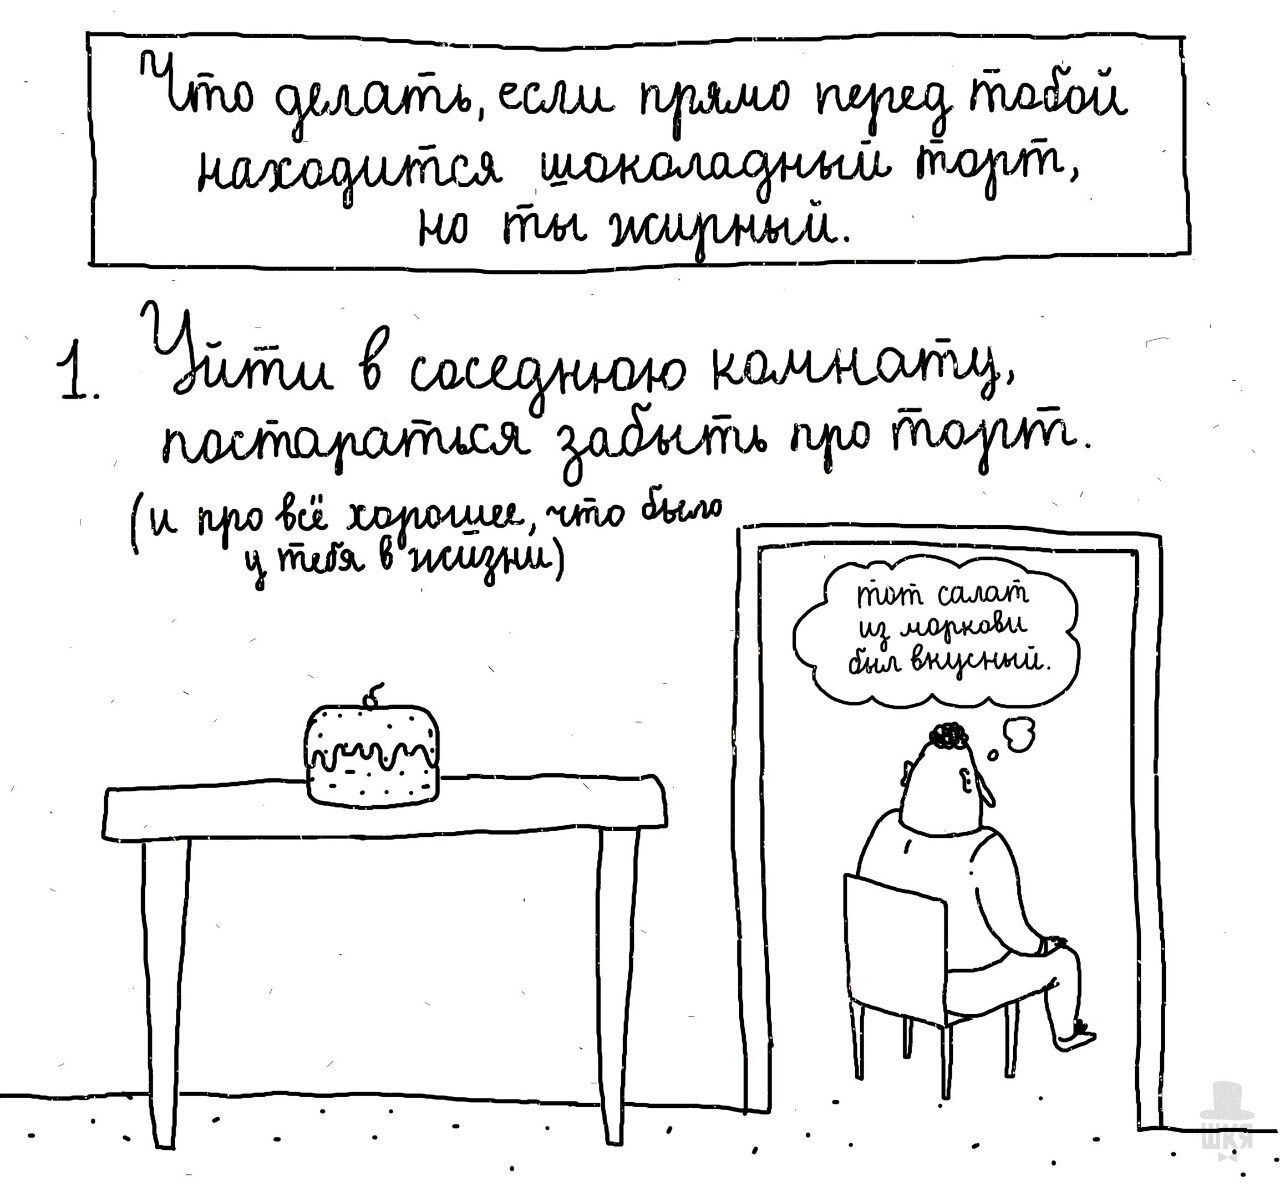 Что делать, если прямо перед тобой
находится шоколадный торт,
но ты жирный.
1. Уйти в соседнюю комнату,
постараться забыть про торт.
(и про всё хорошее, что было
у тебя в жизни)
тот салат
из моркови
был вкусный.
ШКЯ